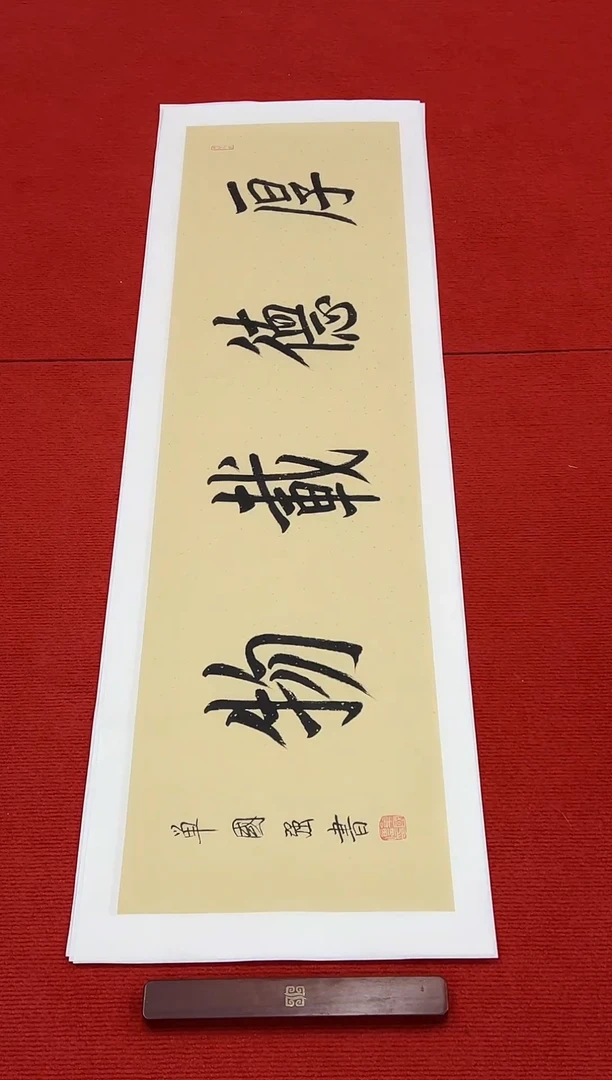 厚德載物
單國强書